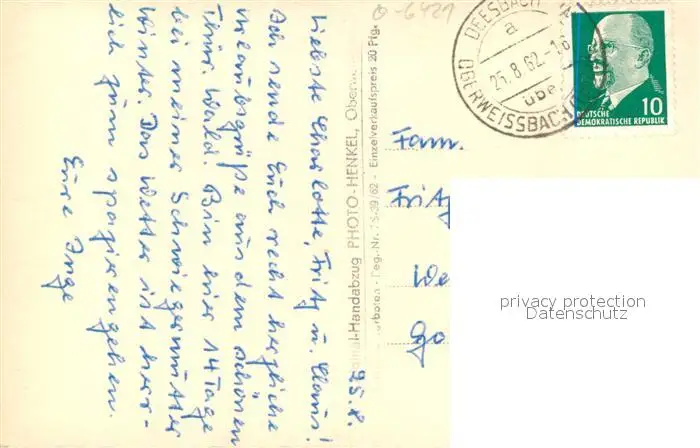 Ο-6421
DEESBACH
a
25.8.62.-16
über
OBERWEISSBACH
10
DEUTSCHE
DEMOKRATISCHE REPUBLIK
25.8.
Liebste Charlotte, Fritz u. Claus!
Ich sende Euch recht herzliche
Urlaubsgrüße aus dem schönen
Thür. Wald. Bin hier 14 Tage
bei meiner Schwiegermutter
Winter. Das Wetter ist herr-
lich zum spazierengehen.
Eure Inge
-Handabzug PHOTO-HENKEL, Oberw
verboten - Reg. Nr. 39/62 - Einzelverkaufspreis 20 Pfg.
Fam.
Fritz
We
Go
privacy protection
Datenschutz